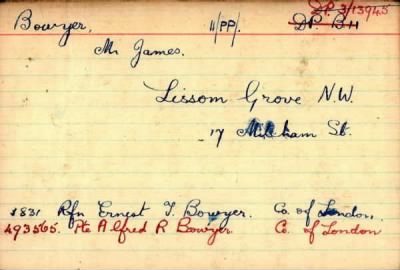 Bowyer, 11/PP/. D.P. 3/13945
D.P. B11
Mr James.
Lissom Grove N.W.
17 St.
1831 Rfn Ernest J. Bowyer. Co. of London.
493565. Pte Alfred R Bowyer. Co. of London